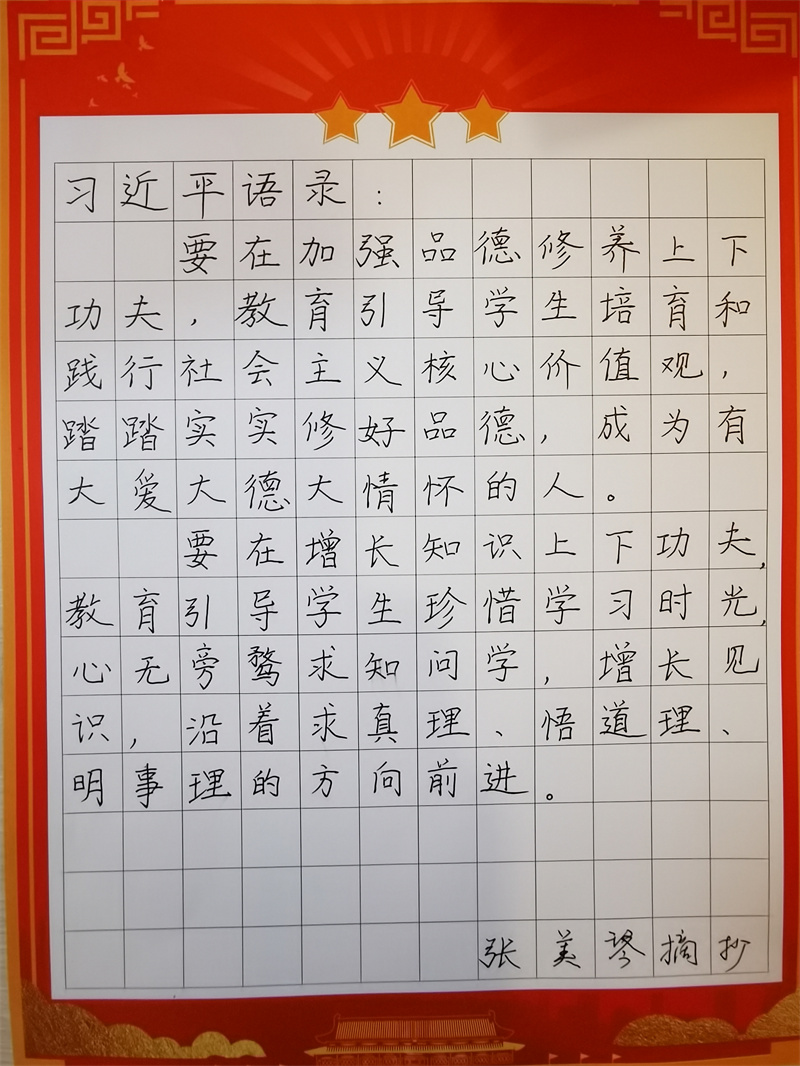 习近平语录：
要在加强品德修养上下
功夫，教育引导学生培育和
践行社会主义核心价值观，
踏踏实实修好品德，成为有
大爱大德大情怀的人。
要在增长知识上下功夫，
教育引导学生珍惜学习时光，
心无旁骛求知问学，增长见
识，沿着求真理、悟道理、
明事理的方向前进。
张美琴摘抄